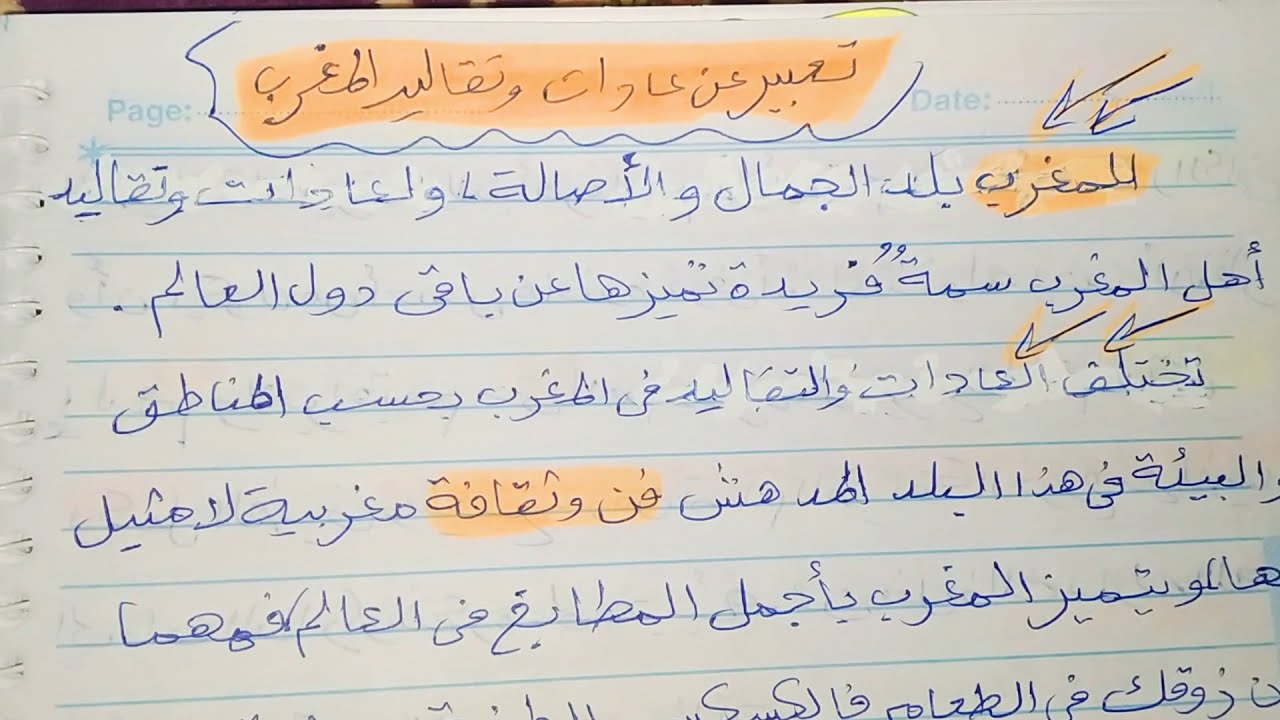 تعبير عن عادات وتقاليد المغرب
Page: Date:
المغرب بلد الجمال والأصالة، ولعادات وتقاليد
أهل المغرب سمة فريدة تميزها عن باقى دول العالم .
تختلف العادات والتقاليد فى المغرب بحسب المناطق
والبيئة فى هذا البلد المدهش فن وثقافة مغربية لا مثيل
لها، ويتميز المغرب بأجمل المطابخ فى العالم، فمهما
ذوقك فى الطعام فالكسكس